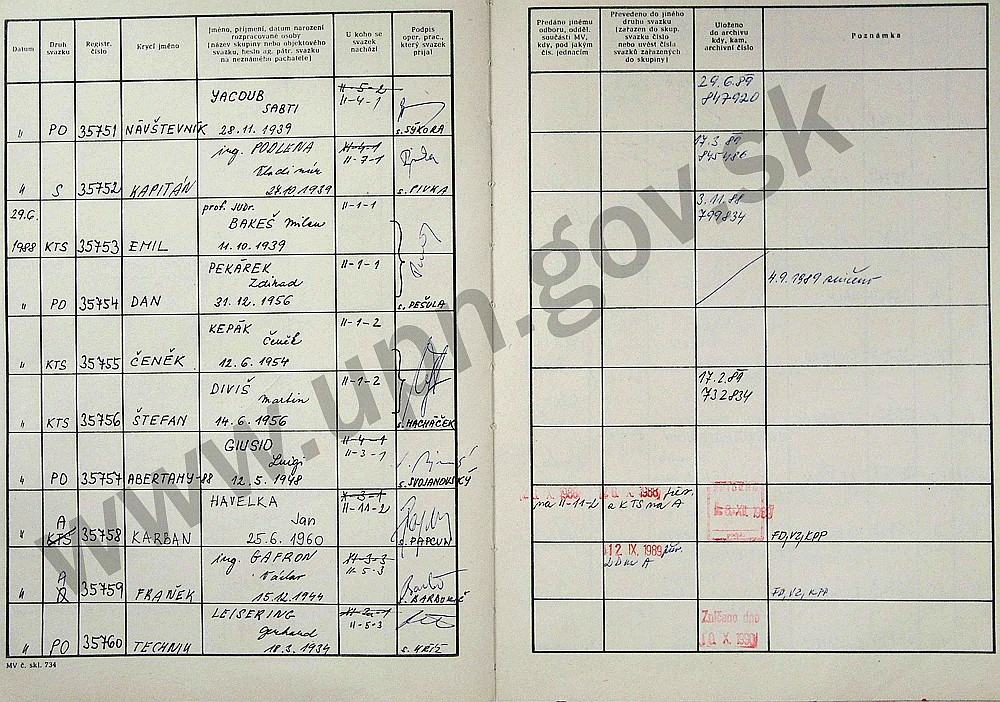 Datum
Druh svazku
Registr. číslo
Krycí jméno
Jméno, příjmení, datum narození
rozpracované osoby
(název skupiny nebo objektového
svazku, heslo ag. pátr. svazku
na neznámého pachatele)
U koho se
svazek
nachází
Podpis
oper. prac.,
který svazek
přijal
Předáno jinému
odboru, odděl.
součásti MV,
kdy, pod jakým
čís. jednacím
Převedeno do jiného
druhu svazku
(zařazen do skup.
svazku číslo
nebo uvést čísla
svazků zařazených
do skupiny)
Uloženo
do archivu
kdy, kam,
archivní číslo
Poznámka
YACOUB II-5-2 29.6.89
SABTI II-4-1 847920
" PO 35751 NÁVŠTEVNÍK 28.11.1939 s. SÝKORA
ing. PODLENA II-4-1 17.3.89
Vladimír II-7-1
" S 35752 KAPITÁN 27.10.1939 s. PIVKA
29.6. prof. JUDr. II-1-1 3.11.88
BAKEŠ Milan 799834
1988 KTS 35753 EMIL 11.10.1939
PEKÁREK II-1-1
Zdihad 4.9.1989 zničeno
" PO 35754 DAN 31.12.1956 s. PEŠULA
KEPÁK II-1-2
Čeněk
" KTS 35755 ČENĚK 12.6.1954
DIVIŠ II-1-2 17.2.89
Martin 732834
" KTS 35756 ŠTEFAN 14.6.1956 s. MACHÁČEK
GIUSIO II-4-1
Luigi II-3-1
" PO 35757 ABERTAMY-88 12.5.1948 s. SVOJANOVSKÝ
HAVELKA X-3-1 X. 1988 X. 1988 přev. Zničeno
A Jan II-11-2 na II-11-2 a KTS na A
" KTS 35758 KARBAN 25.6.1960 s. PAPCUN FO,VZ,KPP
ing. GAFRON II-3-3 12. IX. 1989 přev.
A Václav II-5-3
" 35759 FRANĚK 15.12.1944 FO, VZ, KPP
LEISERING II-2-1 Zničeno dne
Gerhard II-5-3 X. 1990
" PO 35760 TECHNIK 18.3.1934 s. KŘÍŽ
MV č. skl. 734
www.upn.gov.sk